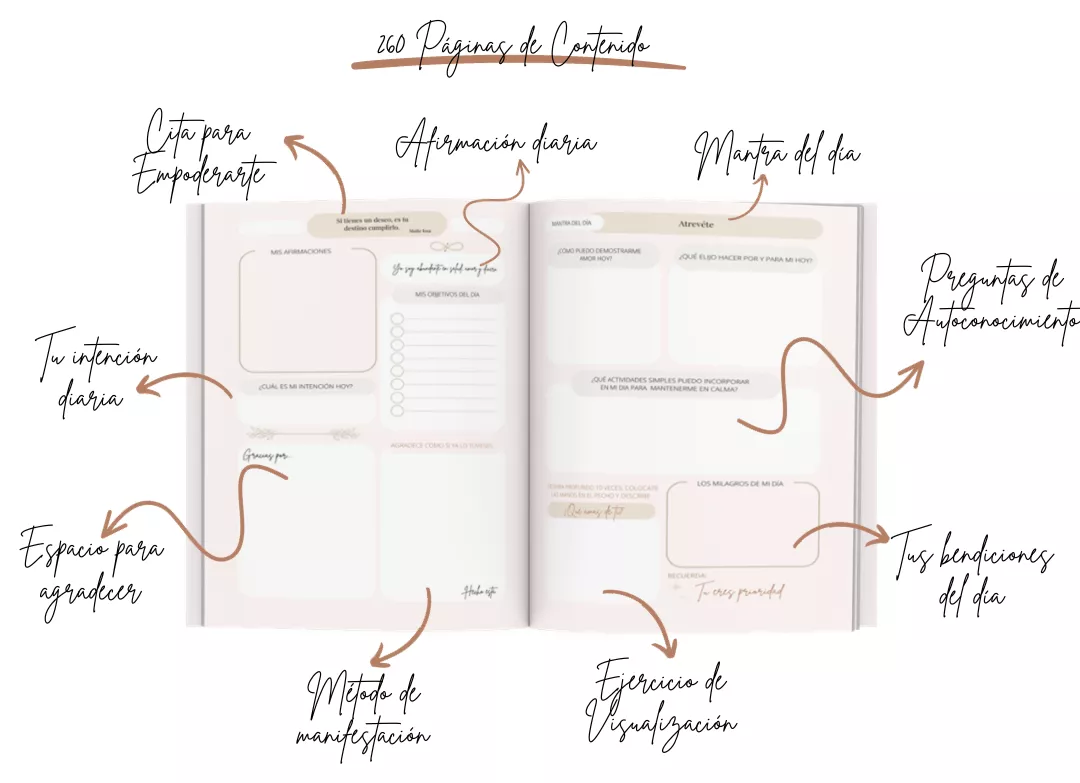 260 Páginas de Contenido
Cita para
Empoderarte
Afirmación diaria
Mantra del día
Si tienes un deseo, es tu
destino cumplirlo.
MIS AFIRMACIONES
Yo soy abundante en salud amor y dinero
MIS OBJETIVOS DEL DÍA
¿CUÁL ES MI INTENCIÓN HOY?
Gracias por...
AGRADECE COMO SI YA LO TUVIERAS
Hecho está
MANTRA DEL DÍA
Atrevéte
¿CÓMO PUEDO DEMOSTRARME
AMOR HOY?
¿QUÉ ELIJO HACER POR Y PARA MI HOY?
¿QUÉ ACTIVIDADES SIMPLES PUEDO INCORPORAR
EN MI DIA PARA MANTENERME EN CALMA?
PROFUNDO 10 VECES, COLOCATE
LAS MANOS EN EL PECHO Y DESCRIBE
¿Qué amas de tí?
LOS MILAGROS DE MI DÍA
RECUERDA:
Tu eres prioridad
Preguntas de
Autoconocimiento
Tu intención
diaria
Espacio para
agradecer
Tus bendiciones
del día
Método de
manifestación
Ejercicio de
Visualización